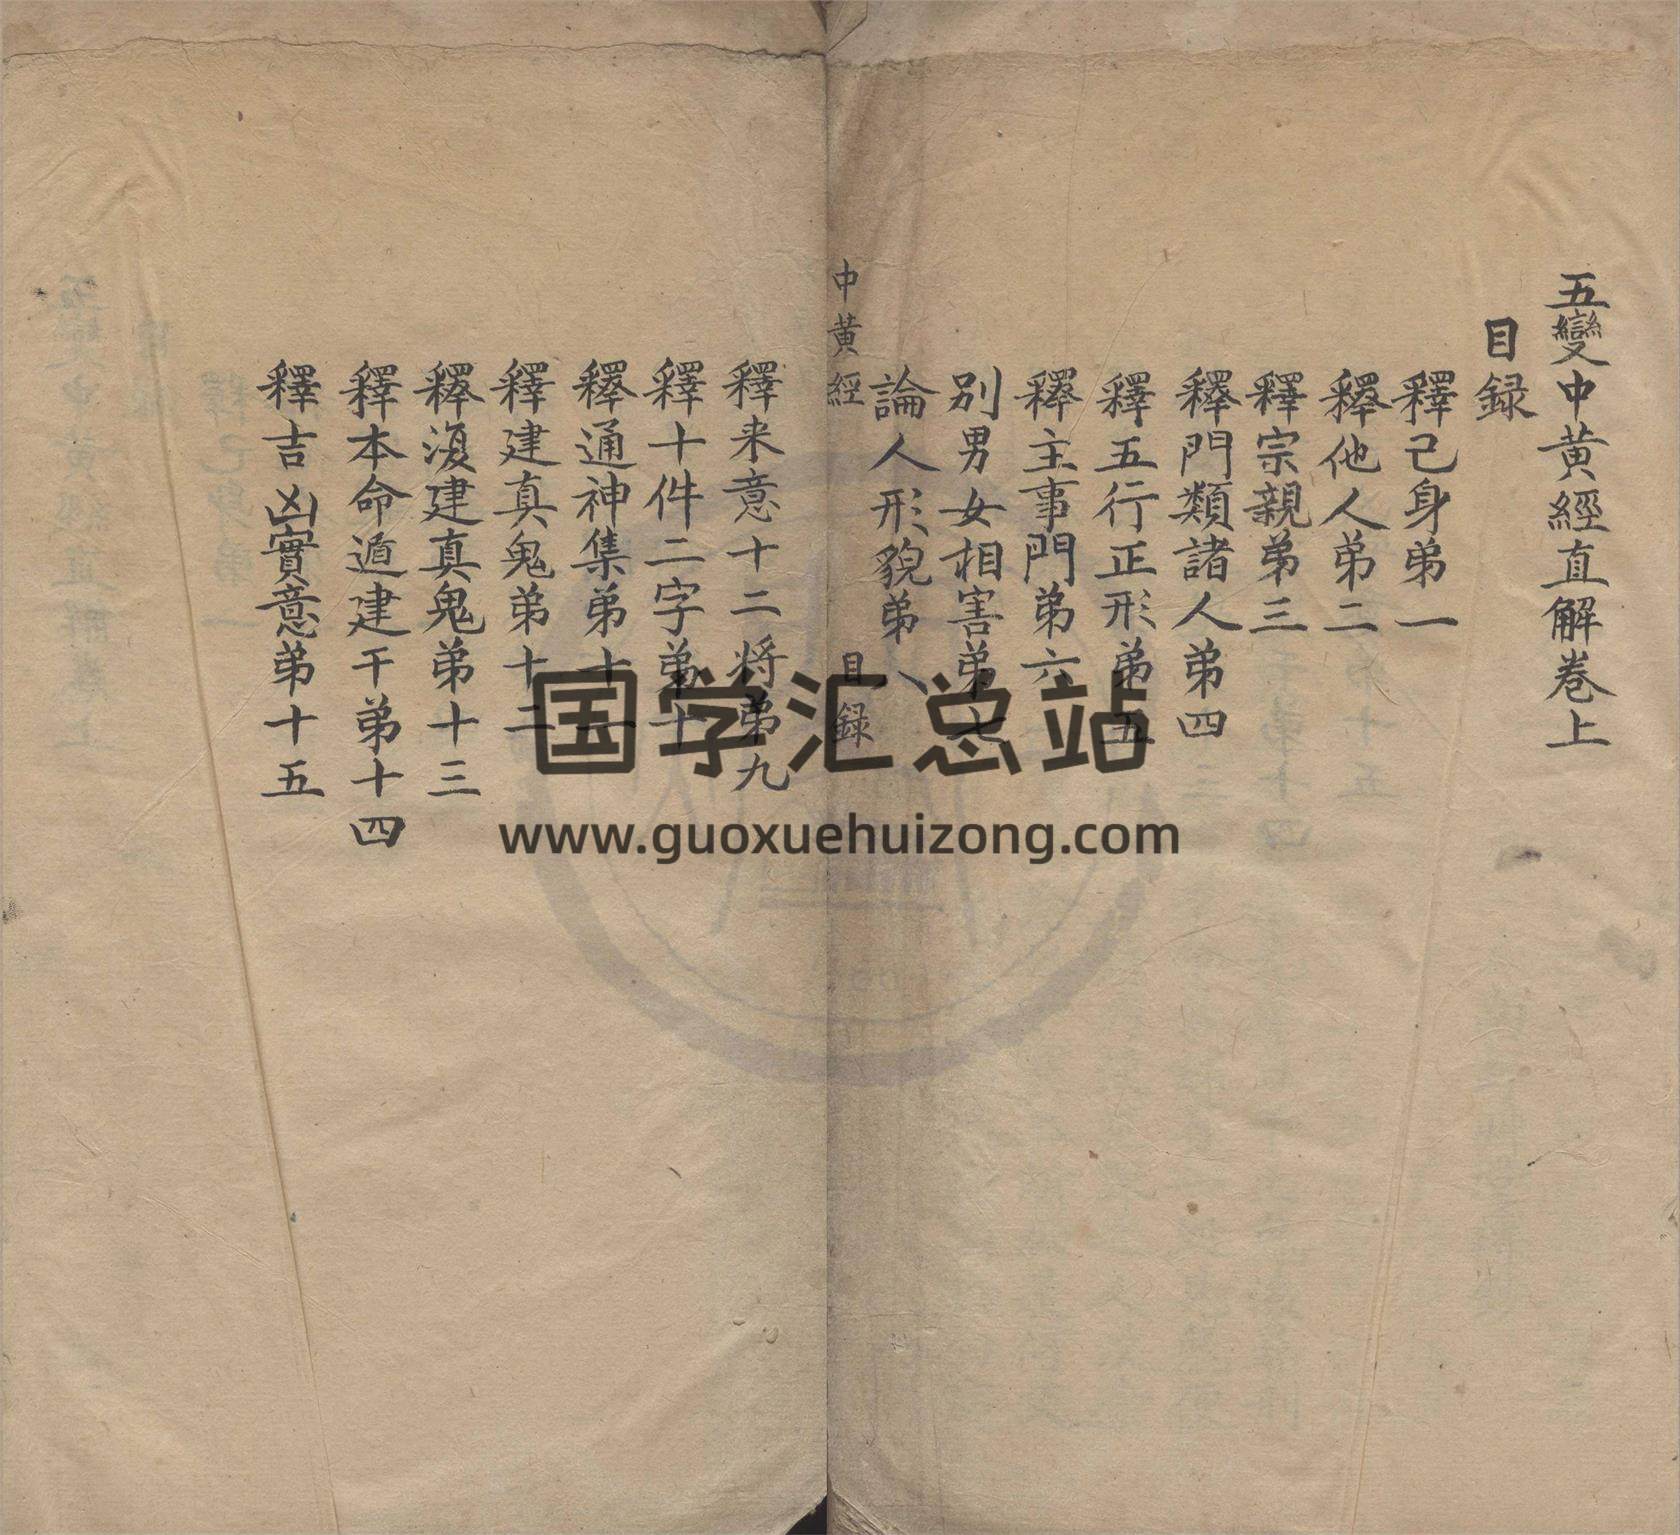 五變中黄經直解卷上
目録
釋己身弟一
釋他人弟二
釋宗親弟三
釋門類諸人弟四
釋五行正形弟五
釋主事門弟六
別男女相害弟七
論人形貌弟八
中黄經 目録
釋来意十二将弟九
釋十件二字弟十
釋通神集弟十一
釋建真鬼弟十二
釋復建真鬼弟十三
釋本命遁建干弟十四
釋吉凶實意弟十五
国学汇总站
www.guoxuehuizong.com